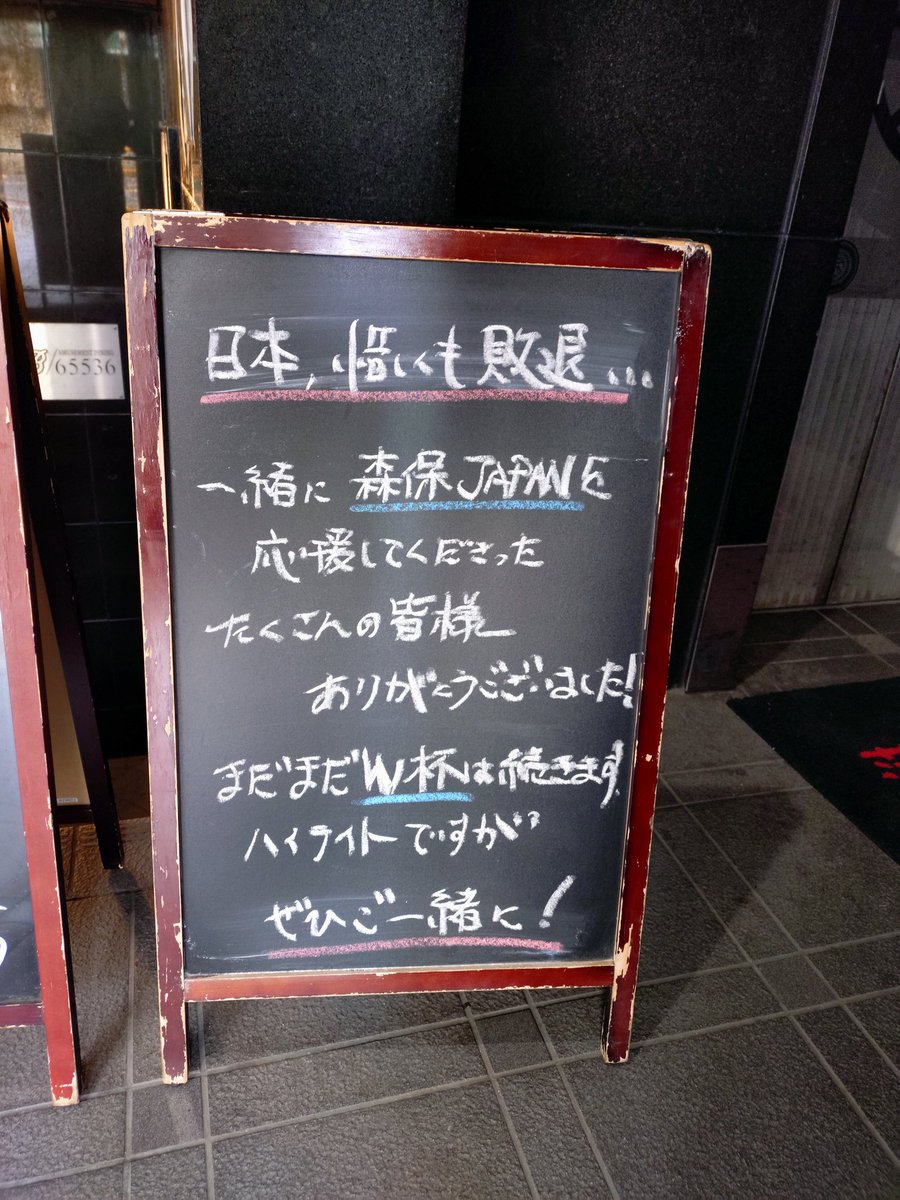 65536
日本、惜しくも敗退...
一緒に森保JAPANを
応援してくださった
たくさんの皆様
ありがとうございました!
まだまだW杯は続きます。
ハイライトですが
ぜひご一緒に!